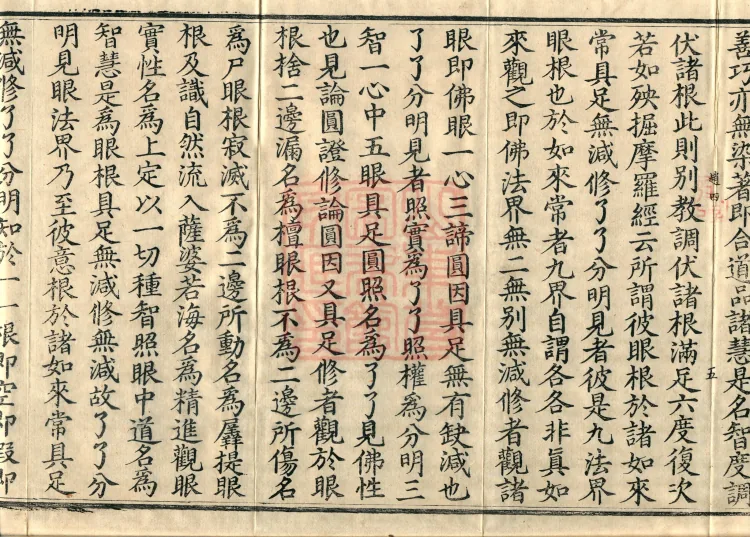 善巧亦無染著即合道品諸慧是名智度調
伏諸根此則別教調伏諸根滿足六度復次
若如殃掘摩羅經云所謂彼眼根於諸如來
常具足無減修了了分明見者彼是九法界
眼根也於如來常者九界自謂各各非真如
來觀之即佛法界無二無別無減修者觀諸
眼即佛眼一心三諦圓因具足無有缺減也
了了分明見者照實為了了照權為分明三
智一心中五眼具足圓照名為了了見佛性
也見論圓證修論圓因又具足修者觀於眼
根捨二邊漏名為檀眼根不為二邊所傷名
為尸眼根寂滅不為二邊所動名為羼提眼
根及識自然流入薩婆若海名為精進觀眼
實性名為上定以一切種智照眼中道名為
智慧是為眼根具足無減修無減故了了分
明見眼法界乃至彼意根於諸如來常具足
無減修了了分明知於一一根即空即假即
五